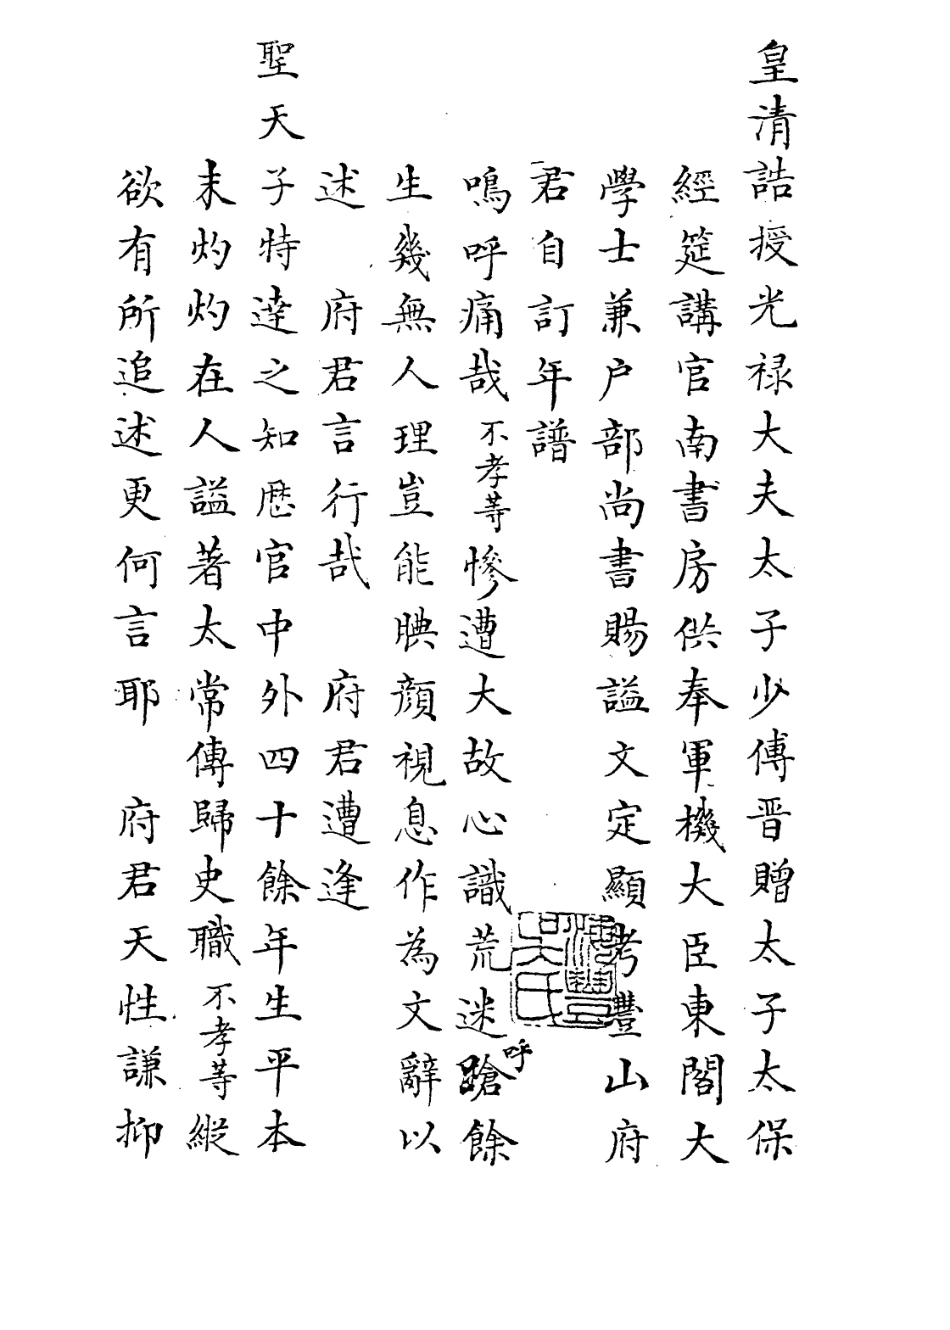 皇清誥授光祿大夫太子少傅晋贈太子太保
經筵講官南書房供奉軍機大臣東閣大
學士兼户部尚書賜謚文定顯考豐山府
君自訂年譜
鳴呼痛哉不孝等慘遭大故心識荒迷蹌餘
呼
生幾無人理豈能腆顔視息作為文辭以
述　府君言行哉　府君遭逢
聖天子特達之知歴官中外四十餘年生平本
末灼灼在人謚著太常傳歸史職不孝等縱
欲有所追述更何言耶　府君天性謙抑
海豐吳氏